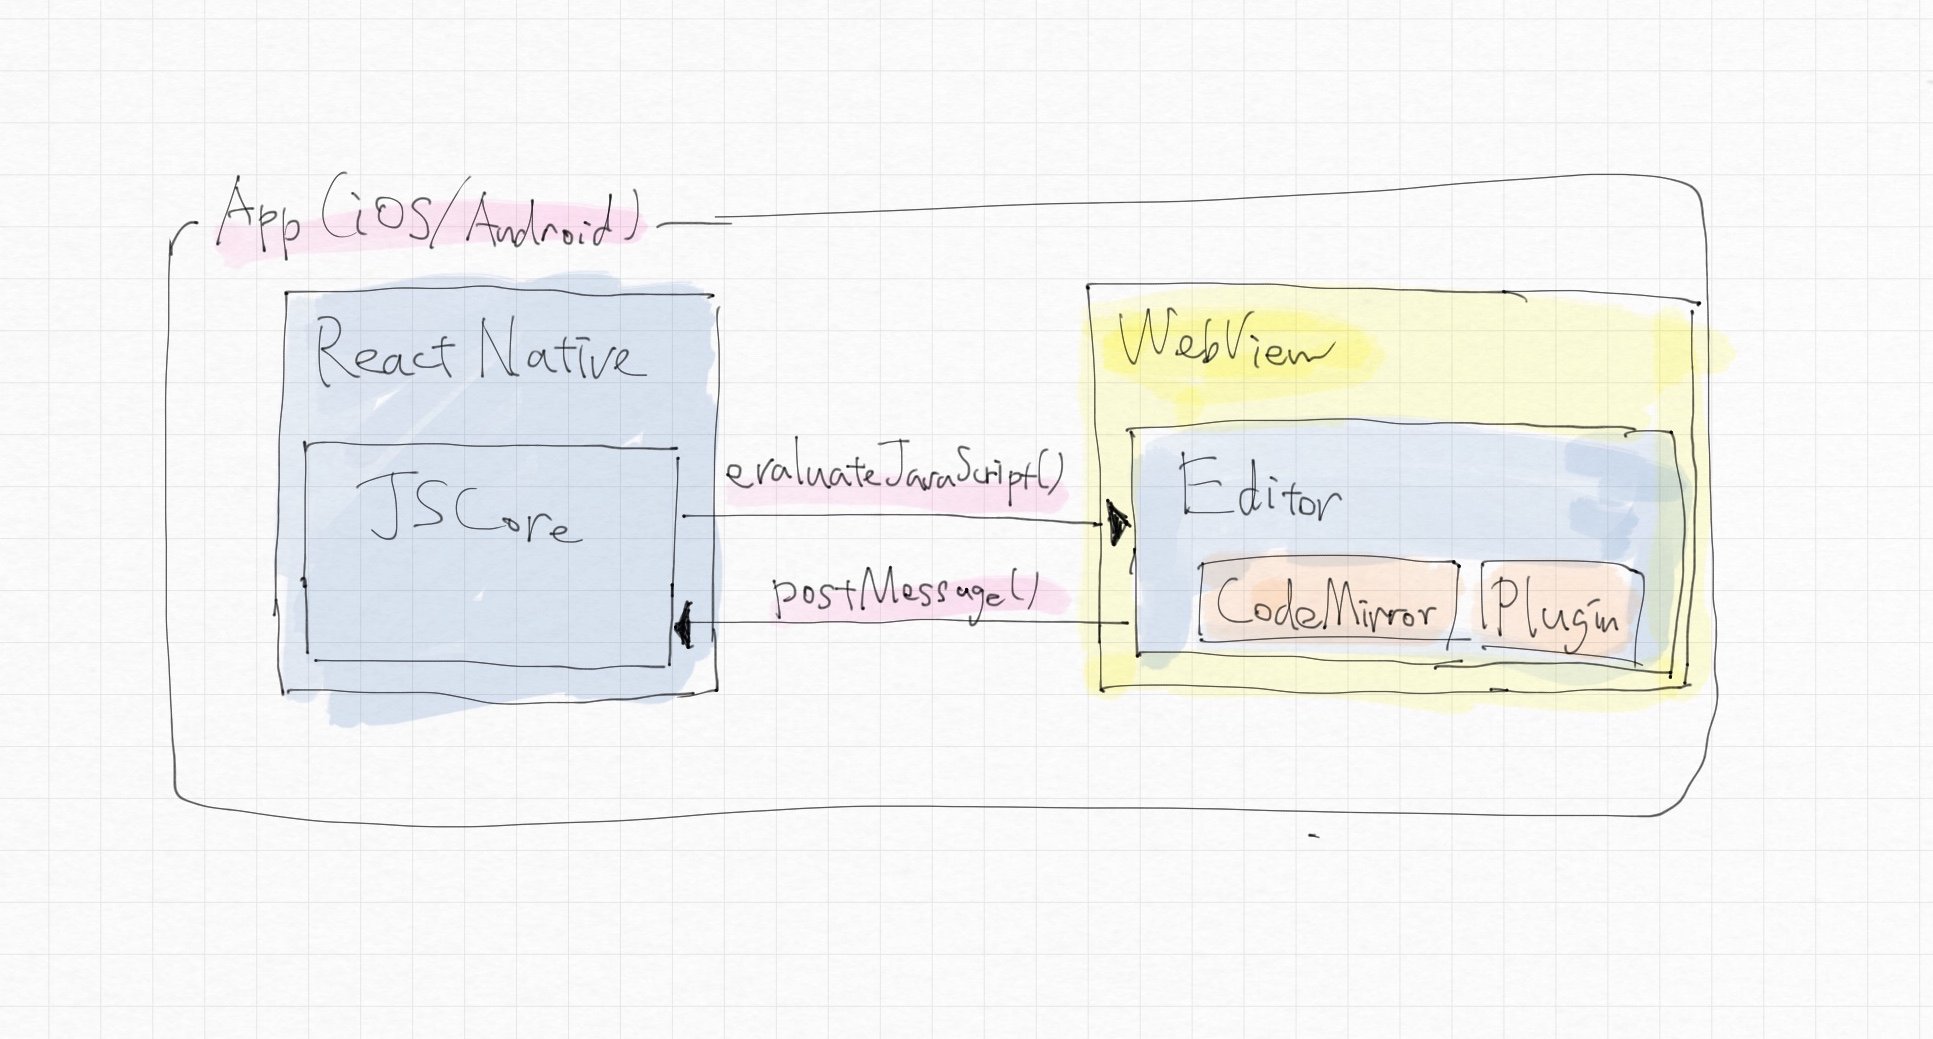 App (iOS/Android)
React Native
JSCore
evaluateJavaScript()
postMessage()
WebView
Editor
CodeMirror
Plugin